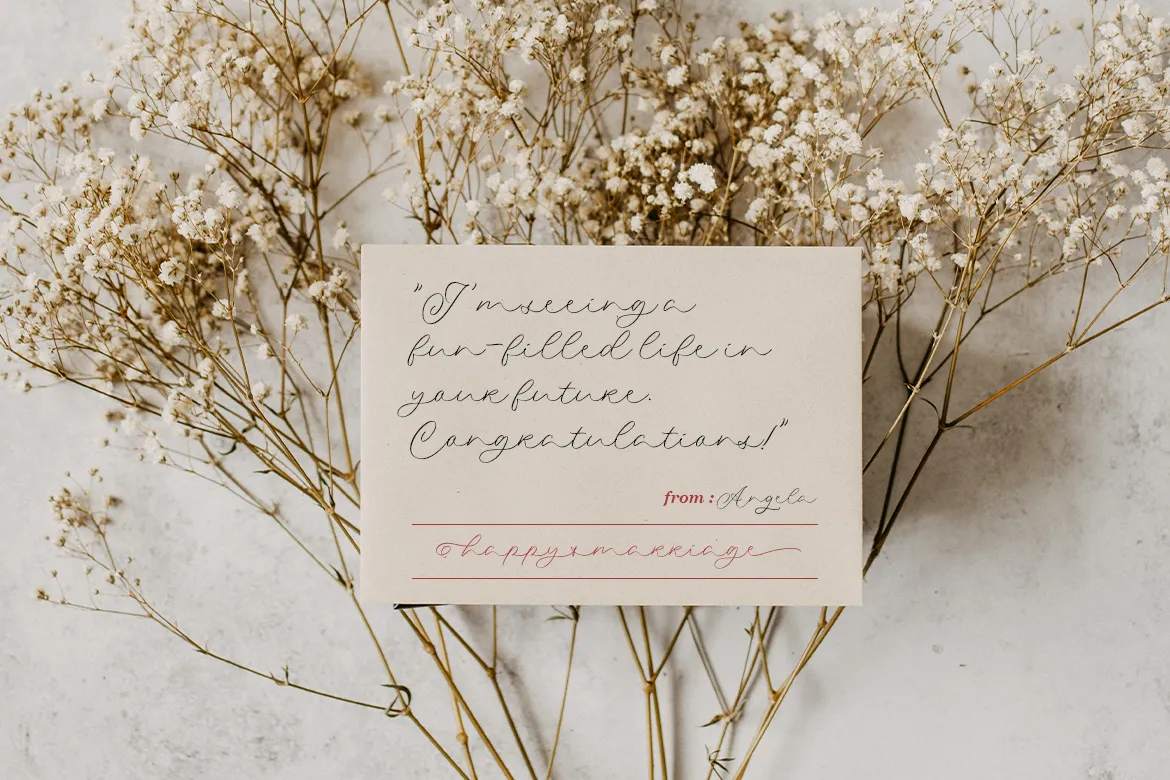 "I'm seeing a
fun-filled life in
your future.
Congratulations!"
from : Angela
happy marriage